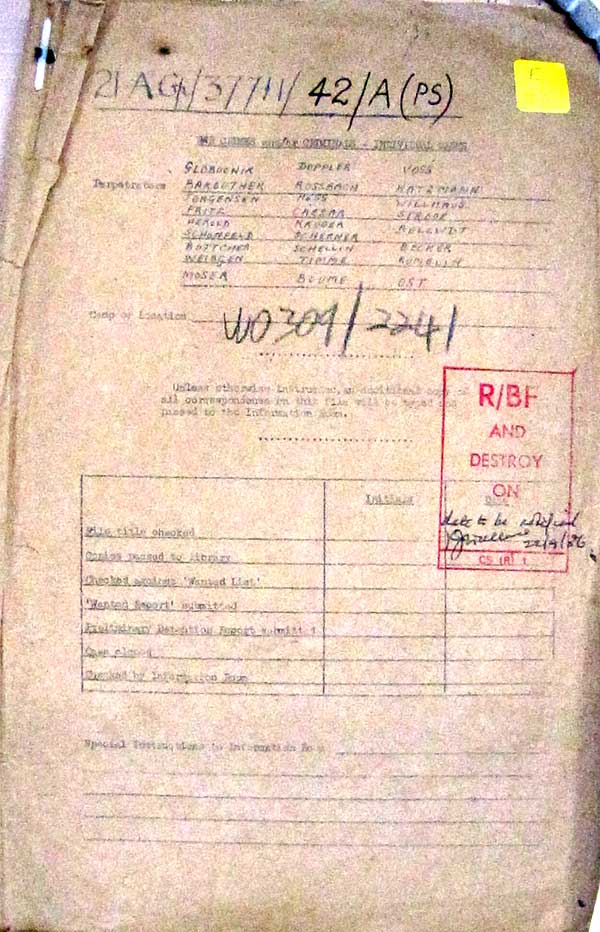 21 AGp/37711/42/A(PS)
WAR CRIMES and/or CRIMINALS - INDIVIDUAL CASES
GLOBOCNIK DOPPLER VOSS
Perpetrators BARGUTHER ROSSBACH KATZMANN
JORGENSEN HESS WILLHAUS
FRITZ CAESAR
HEROLD KRUGER
SCHONFELD SCHERNER BECHER
BOTTCHER SCHELLIN
TIMME ROMELIN
MOSER BLUME OST
Camp or Location WO 309/2241
Unless otherwise instructed, an additional copy of
all correspondence in this file will be typed and
passed to the Information Room.
R/BF
AND
DESTROY
ON
date to be notified
22/9/86
CS (R) 1
Initials Date
File title checked
Copies passed to Library
Checked against 'Wanted List'
'Wanted Report' submitted
Preliminary Detention Report submitted
Case closed
Checked by Information Room
Special Instructions to Information Room